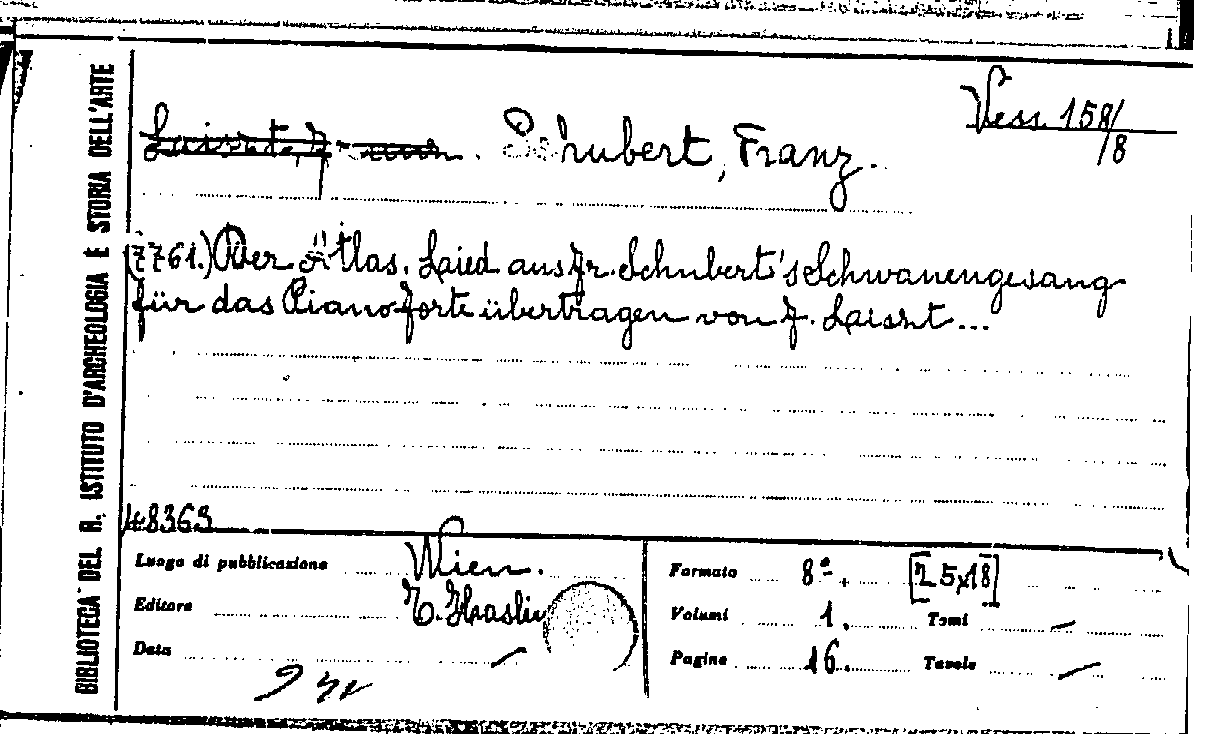 BIBLIOTECA DEL R. ISTITUTO D'ARCHEOLOGIA E STORIA DELL'ARTE
Vess. 158/8
Schubert, Franz.
7761.) Der Atlas. Laied aus Fr. Schubert's Schwanengesang
für das Pianoforte übertragen von F. Laiszt...
48363
Luogo di pubblicazione Wien.
Editore T. Haslin
Data
Formato 8º. [25x18]
Volumi 1. Tomi —
Pagine 16. Tavole —